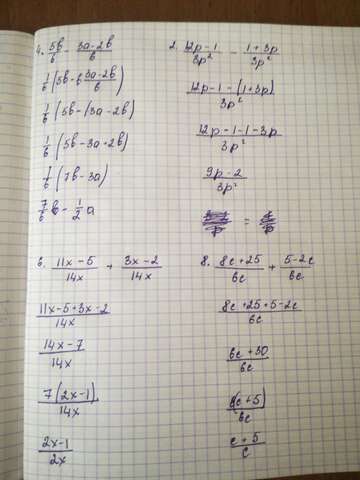 4. 5b/6 - (3a-2b)/6
1/6 (5b - 6 (3a-2b)/6)
1/6 (5b - (3a - 2b)
1/6 (5b - 3a + 2b)
1/6 (7b - 3a)
7/6 b - 1/2 a
2. (12p-1)/3p² - (1+3p)/3p²
(12p-1-(1+3p))/3p²
(12p-1-1-3p)/3p²
(9p-2)/3p²
6. (11x-5)/14x + (3x-2)/14x
(11x-5+3x-2)/14x
(14x-7)/14x
7(2x-1)/14x
(2x-1)/2x
8. (8c+25)/6c + (5-2c)/6c
(8c+25+5-2c)/6c
(6c+30)/6c
6(c+5)/6c
(c+5)/c